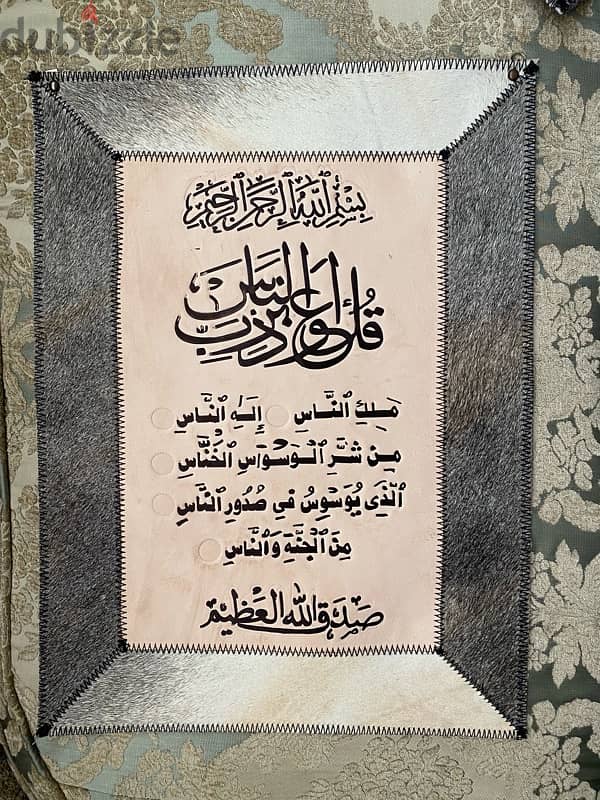 dubizzle
بِسْمِ ٱللَّهِ ٱلرَّحْمَٰنِ ٱلرَّحِيمِ
قُلْ أَعُوذُ بِرَبِّ ٱلنَّاسِ
مَلِكِ ٱلنَّاسِ إِلَٰهِ ٱلنَّاسِ
مِن شَرِّ ٱلْوَسْوَاسِ ٱلْخَنَّاسِ
ٱلَّذِى يُوَسْوِسُ فِى صُدُورِ ٱلنَّاسِ
مِنَ ٱلْجِنَّةِ وَٱلنَّاسِ
صَدَقَ اللّٰه العَظِيم